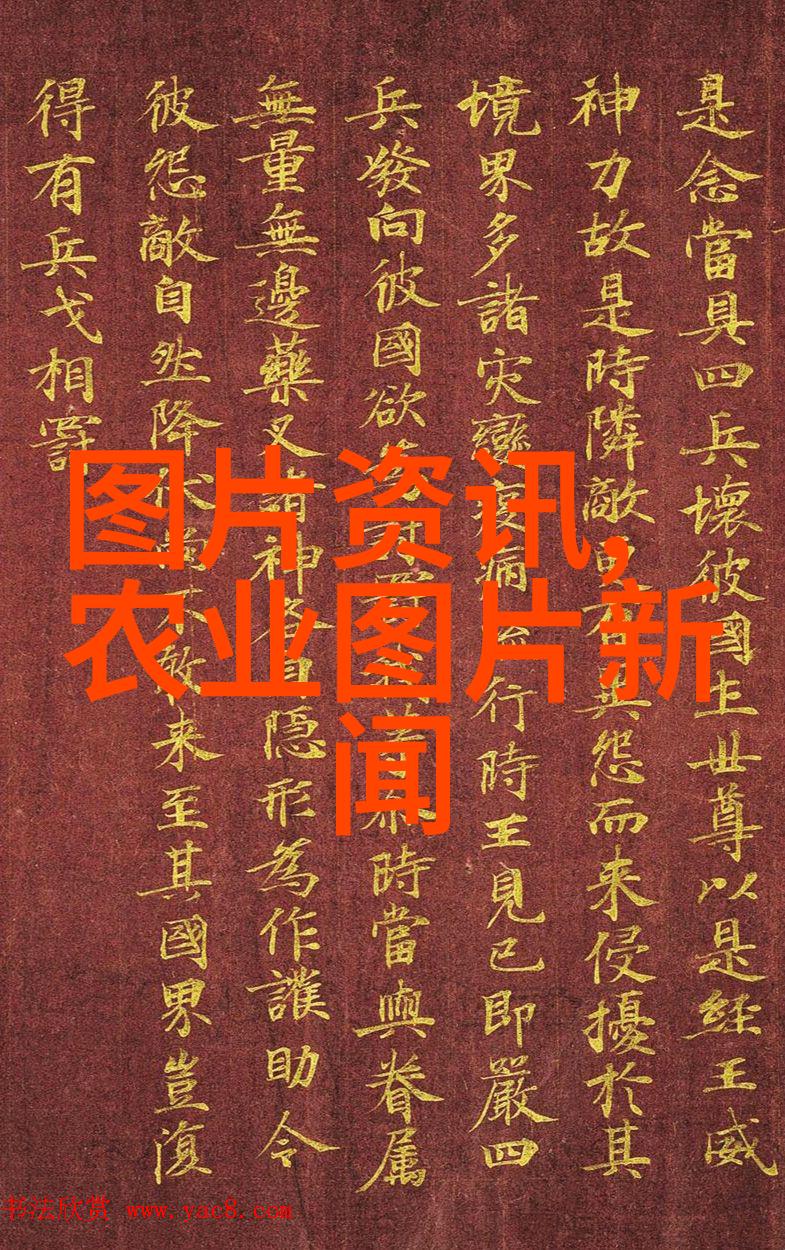 是念當具四兵壞彼國土世尊以是經王威
神力故是時隣敵更有異怨而来侵擾於其
境界多諸灾變疫病流行時王見已即嚴四
兵發向彼國欲為討罰我等尒時當與眷属
無量無邊藥叉諸神各自隱形為作護助令
彼怨敵自然降伏尚不敢来至其國界豈復
得有兵戈相罸
图片资讯,
农业图片新
闻
书法欣赏 www.yac8.com